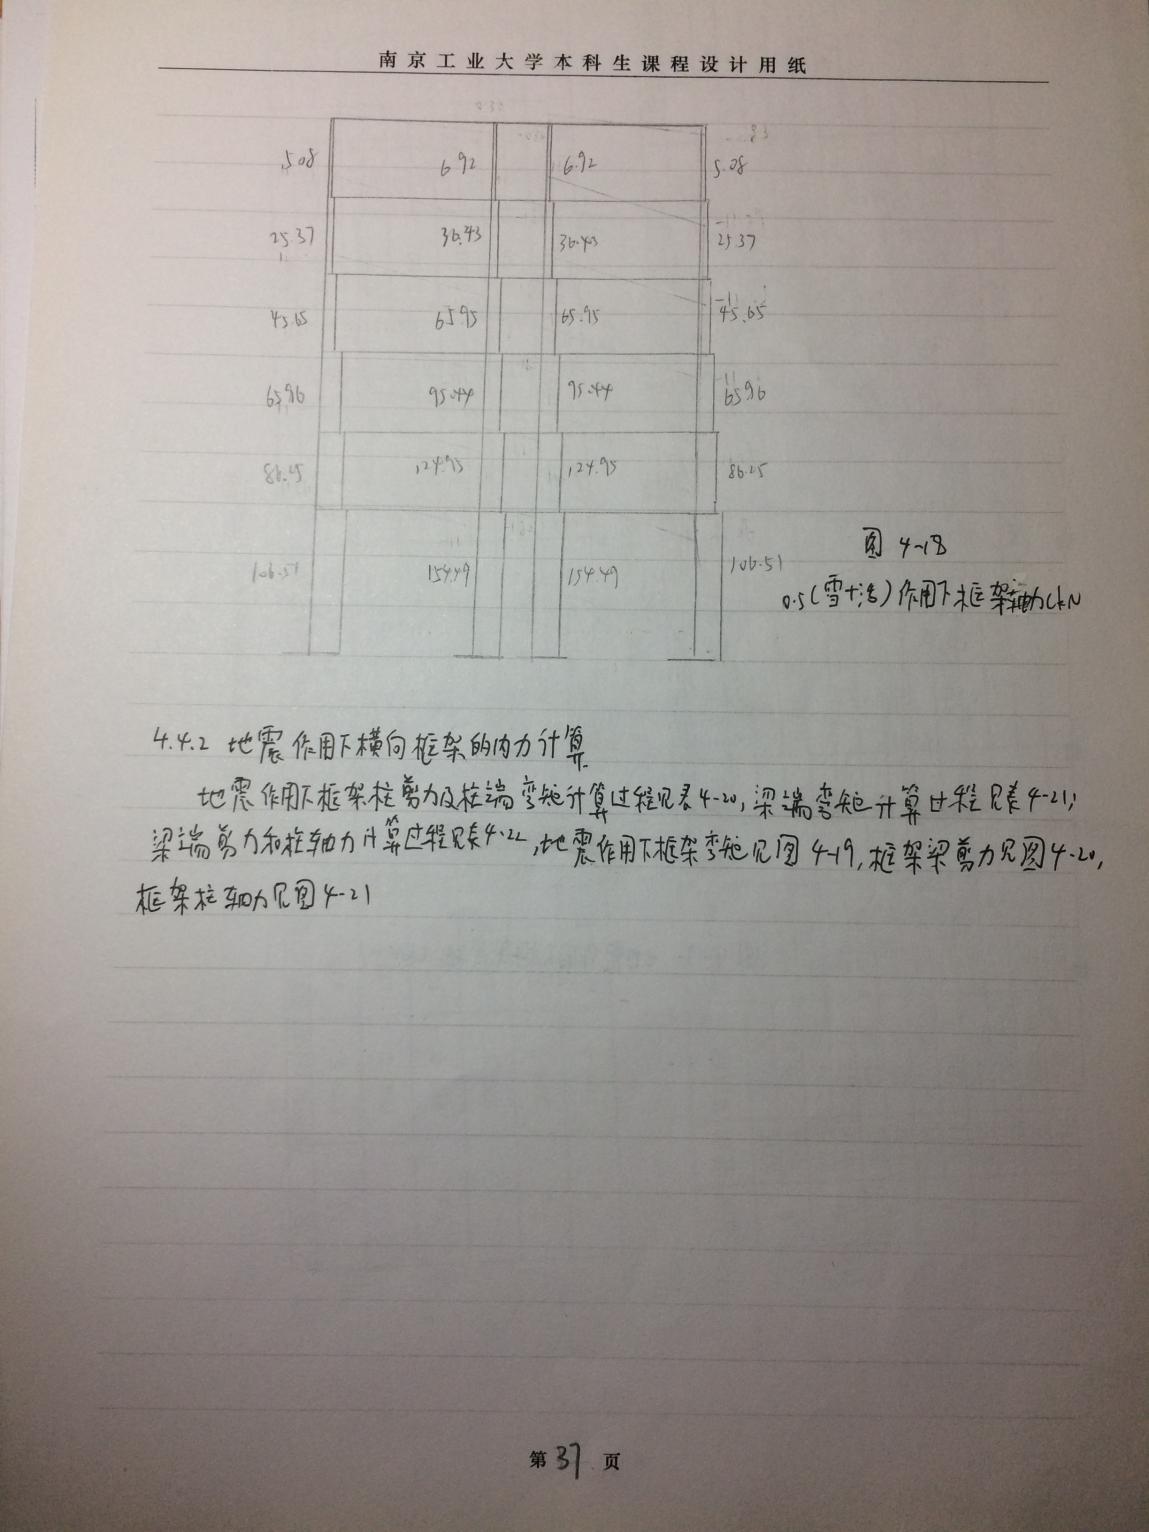 南京工业大学本科生课程设计用纸
5.08 6.92 6.92 5.08
25.37 36.43 36.43 25.37
45.65 65.95 65.95 45.65
65.96 95.44 95.44 65.96
86.25 124.95 124.95 86.25
106.51 154.49 154.49 106.51
图 4-18
0.5(雪+活)作用下框架轴力(kN
4.4.2 地震作用下横向框架的内力计算
地震作用下框架柱剪力及柱端弯矩计算过程见表4-20,梁端弯矩计算过程见表4-21;
梁端剪力和柱轴力计算过程见表4-22,地震作用下框架弯矩见图4-19,框架梁剪力见图4-20,
框架柱轴力见图4-21
第37页